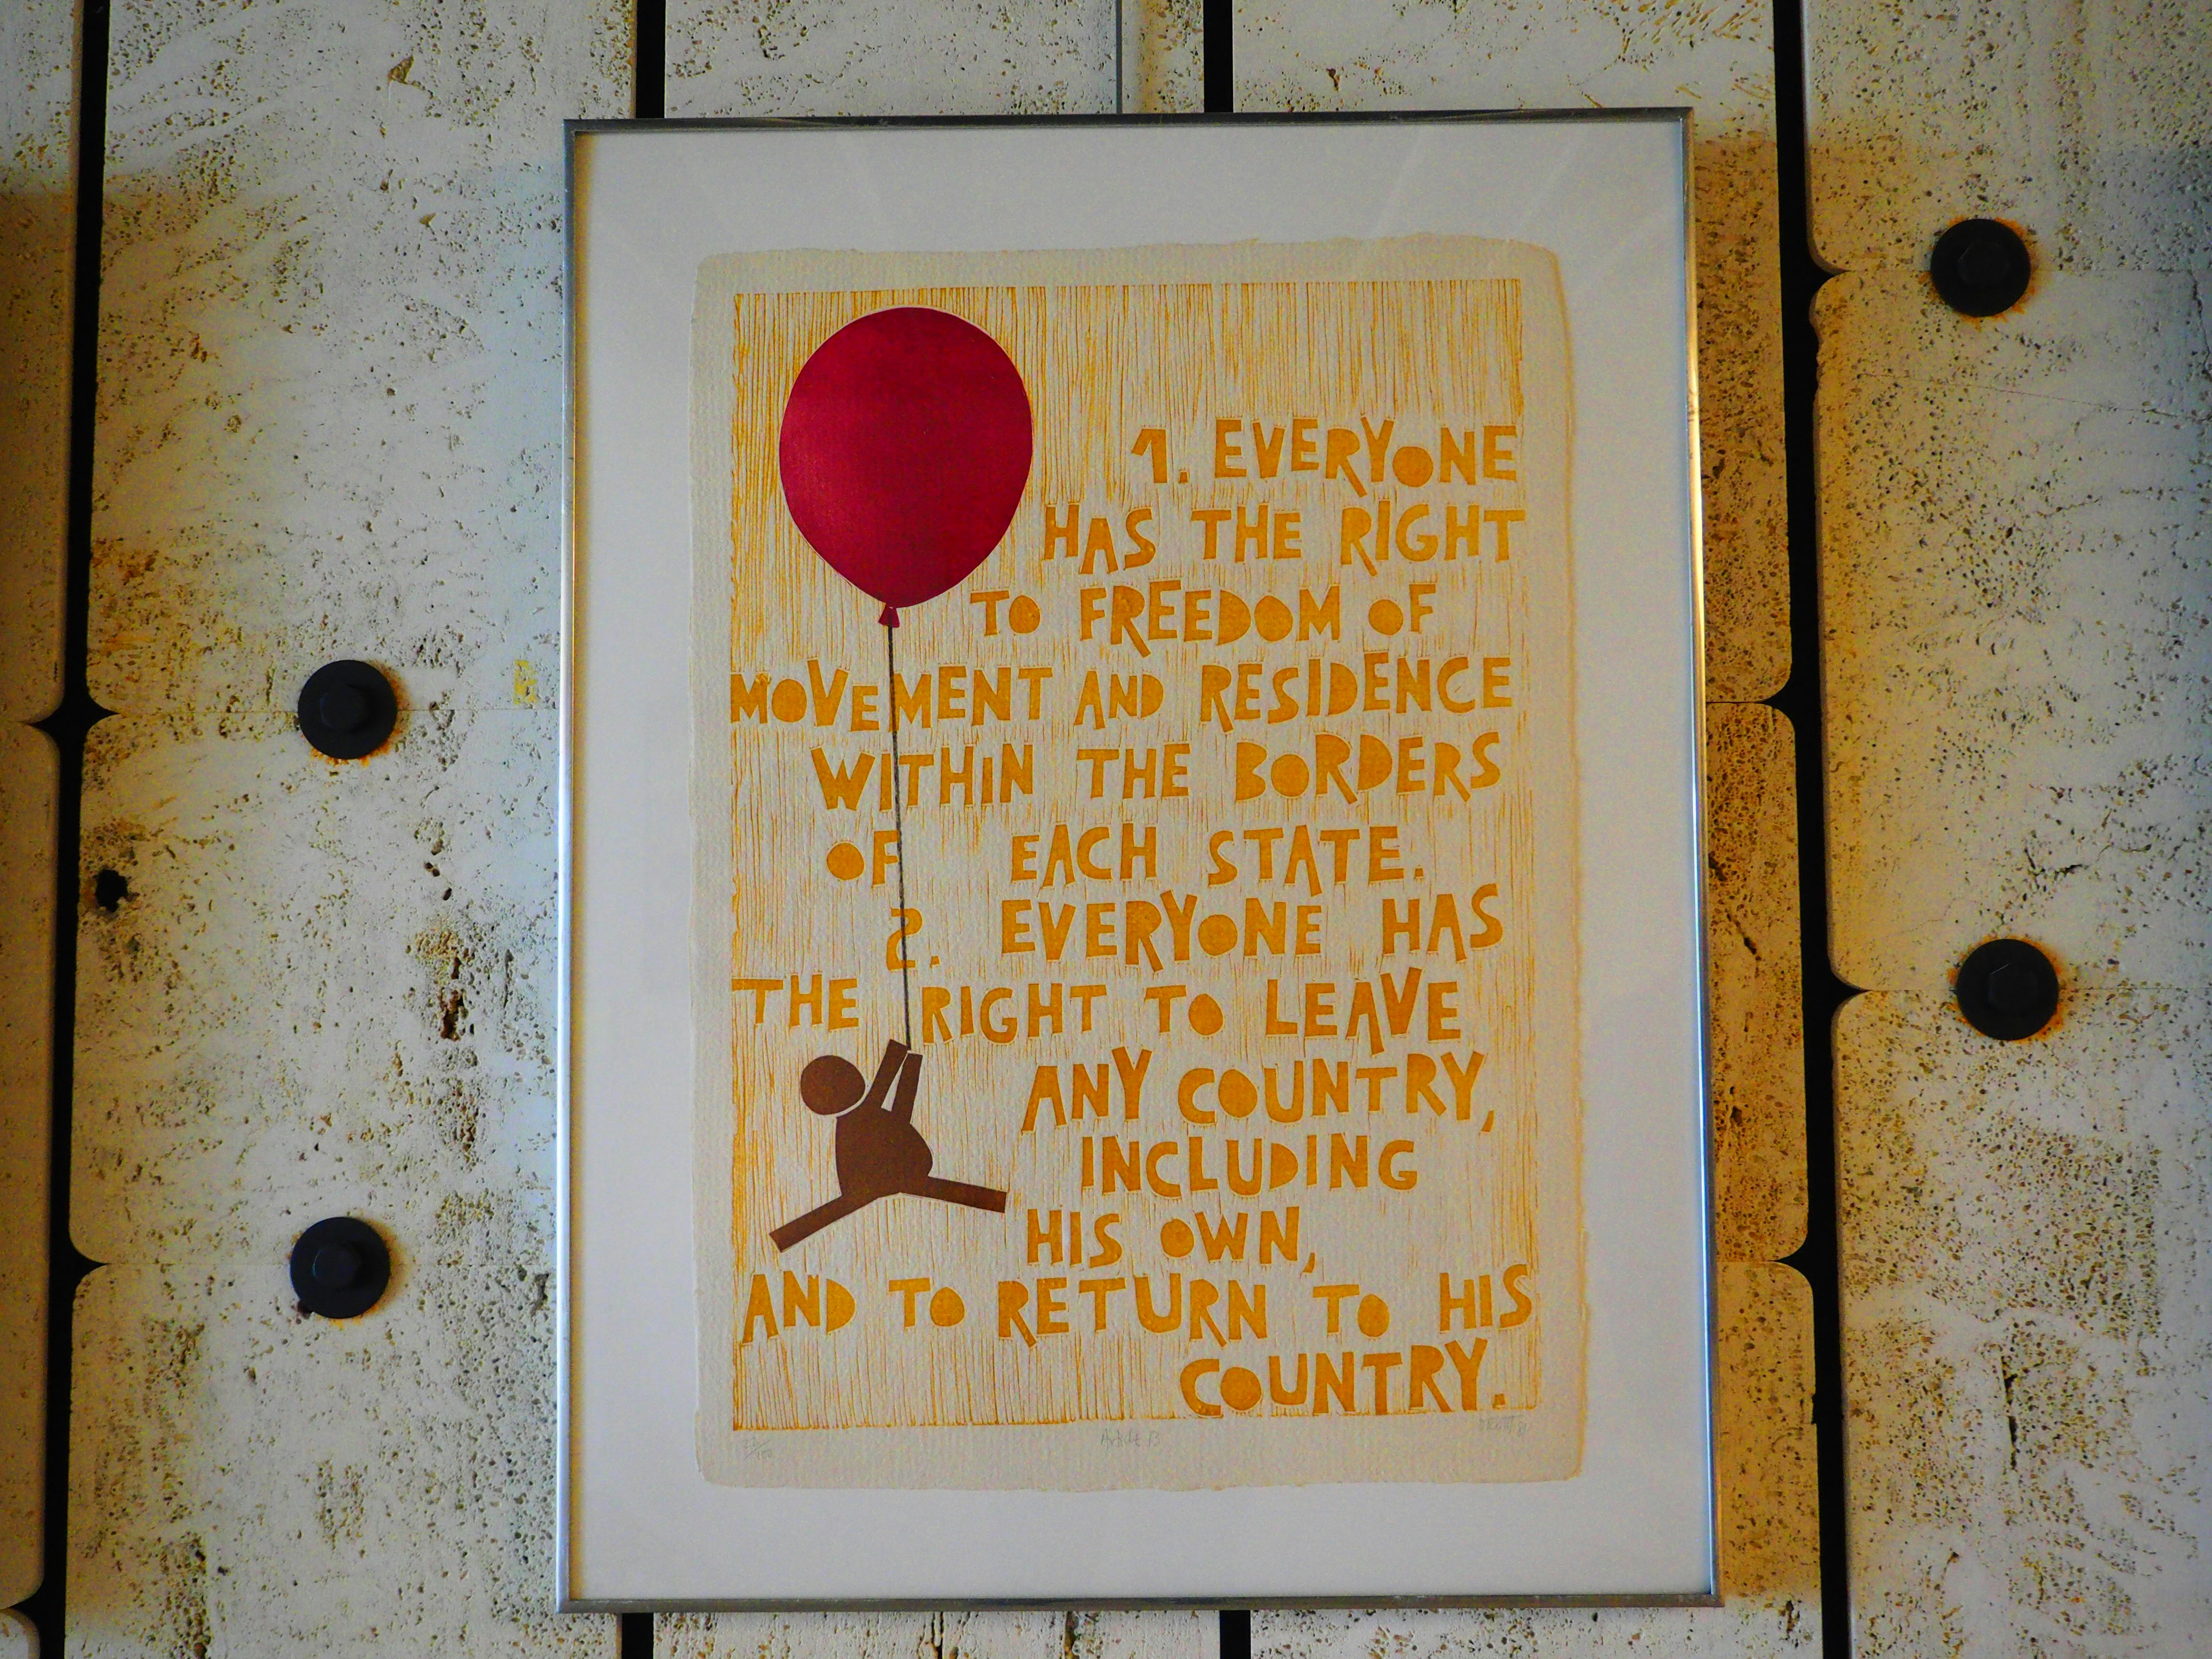 1. EVERYONE
HAS THE RIGHT
TO FREEDOM OF
MOVEMENT AND RESIDENCE
WITHIN THE BORDERS
OF EACH STATE.
2. EVERYONE HAS
THE RIGHT TO LEAVE
ANY COUNTRY,
INCLUDING
HIS OWN,
AND TO RETURN TO HIS
COUNTRY.
Article 13